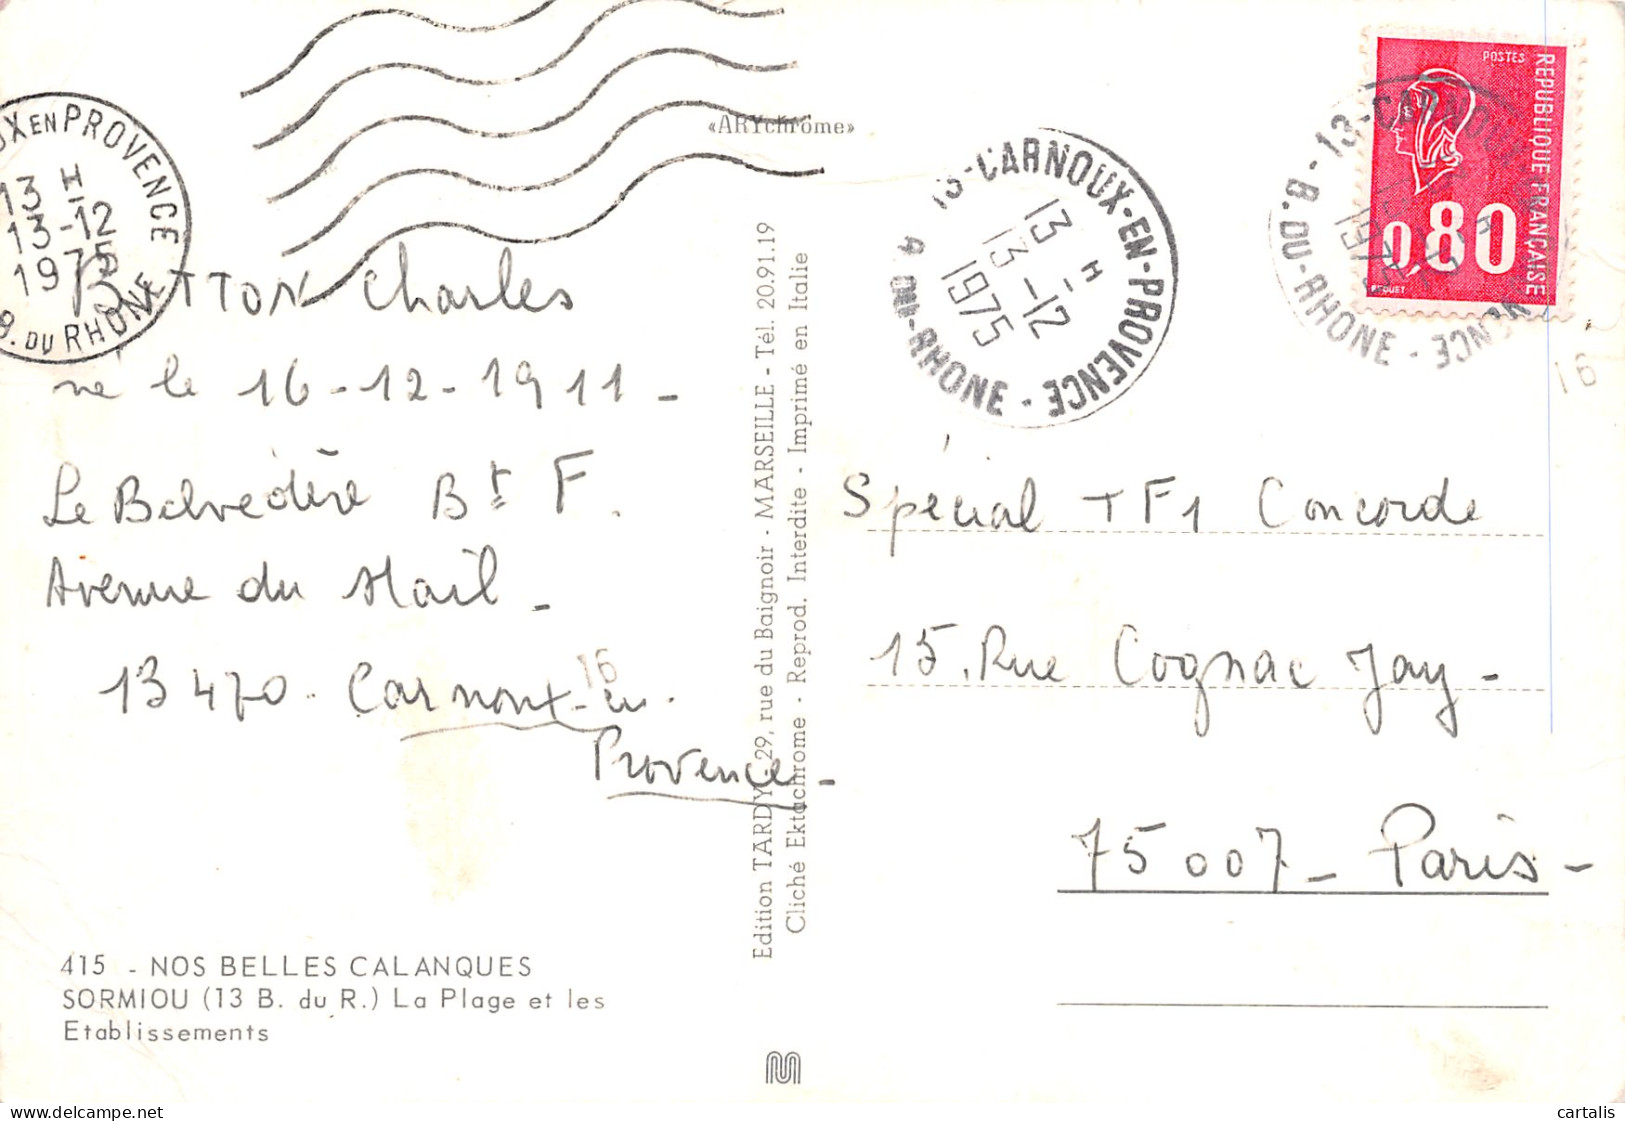 «ARYchrome»
POSTES
REPUBLIQUE FRANÇAISE
0,80
BEQUET
UX EN PROVENCE
13 H
13-12
1975
B. DU RHONE
13-CARNOUX-EN-PROVENCE
13 H
13-12
1975
DU-RHONE
13-CARNOUX
1975
B. DU-RHONE
16
TTON Charles
né le 16-12-1911-
Le Belvédère Bt F.
Avenue du Mail-
13470. Carnoux-en-
Provence-
16
Edition TARDY - 29, rue du Baignoir - MARSEILLE - Tél. 20.91.19
Cliché Ektachrome - Reprod. Interdite - Imprimé en Italie
Spécial TF1 Concorde
15. Rue Cognac Jay-
75007- Paris-
415 - NOS BELLES CALANQUES
SORMIOU (13 B. du R.) La Plage et les
Etablissements
cartalis